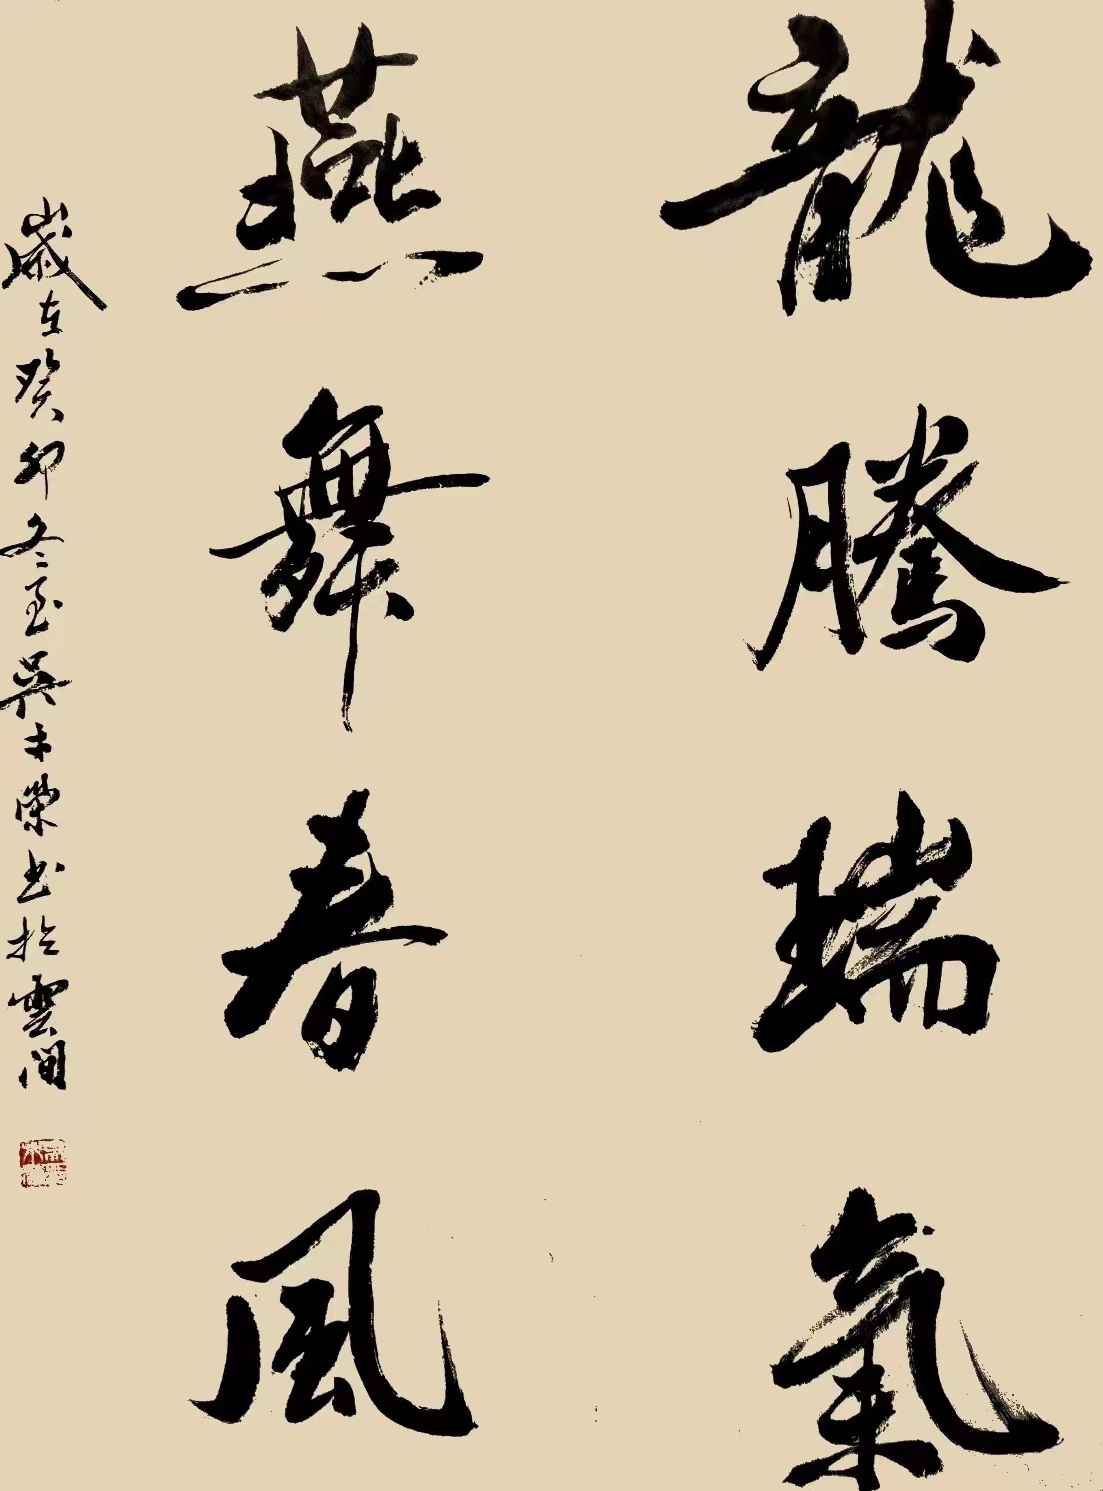 龍騰瑞氣
燕舞春風
歲在癸卯冬至吳木榮书於雲间